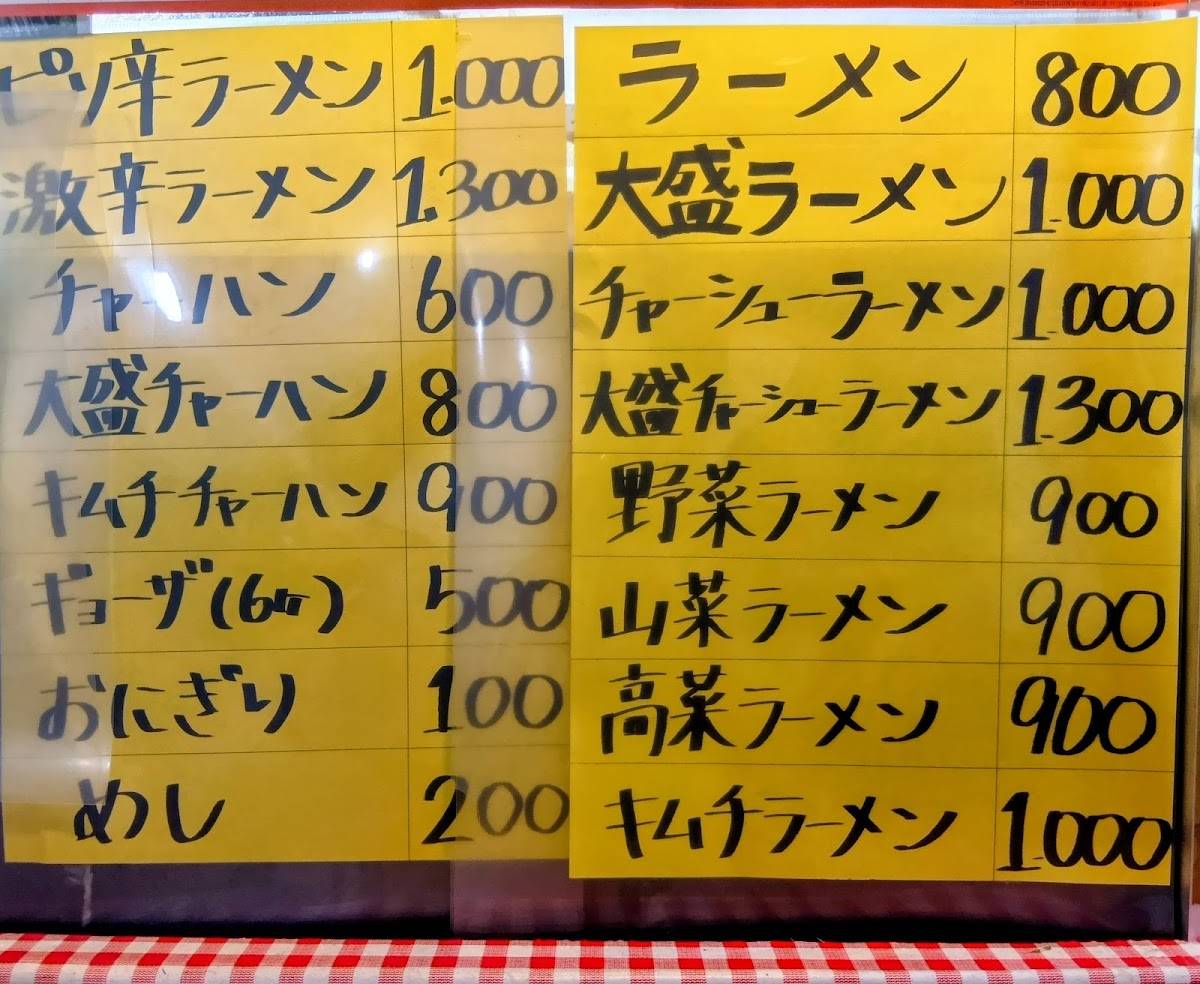 ピリ辛ラーメン 1.000
激辛ラーメン 1.300
チャーハン 600
大盛チャーハン 800
キムチチャーハン 900
ギョーザ(6ヶ) 500
おにぎり 100
めし 200
ラーメン 800
大盛ラーメン 1.000
チャーシューラーメン 1.000
大盛チャーシューラーメン 1.300
野菜ラーメン 900
山菜ラーメン 900
高菜ラーメン 900
キムチラーメン 1.000